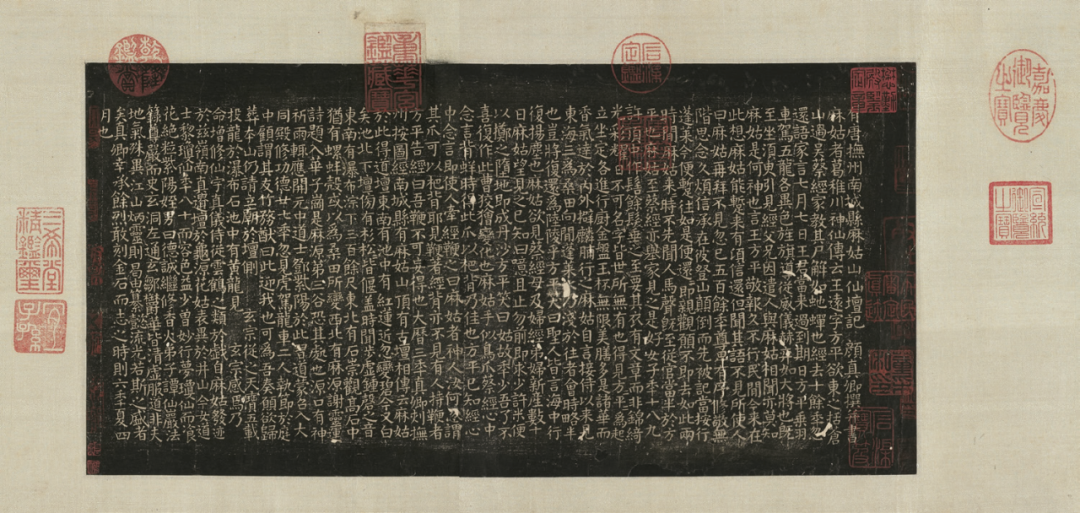 嘉慶御覽之寶
宣統御覽之寶
有唐撫州南城縣麻姑山仙壇記 顏真卿撰并書
麻姑者葛稚川神仙傳云王遠字方平欲東之括蒼
山過吳蔡經家教其尸解如蛇蟬也經去十餘年忽
還語家言七月七日王君當來過到期日方平乘羽
車駕五龍各異色旌旗導從威儀赫弈如大將也既
至坐須臾引見經父兄因遣人與麻姑相聞亦莫知
麻姑是何神也言王方平敬報久不行民間今來在
此想麻姑能暫來有頃信還但聞其語不見所使人
曰麻姑再拜不見忽已五百餘年尊卑有序修敬無
階思念久煩信承在彼登山顛倒而先被記當按行
蓬萊今便暫往如是便還還即親觀願不即去如此兩
時間麻姑來來時不先聞人馬聲既至從官當半於方
平也麻姑至蔡經亦舉家見之是好女子年十八九
許頂中作髻餘髮垂之至要其衣有文章而非錦綺
光彩耀日不可名字皆世所無有也得見方平方平為起
立坐定各進行廚金盤玉杯無限美膳多是諸華而
香氣達於內外擗麟脯行之麻姑自言接待以來見
東海三為桑田向間蓬萊水乃淺於往者會時略半
也豈將復還為陸陵乎方平笑曰聖人皆言海中行
復揚塵也麻姑欲見蔡經母及婦經弟婦新產數十
日麻姑望見之已知曰噫且止勿前即求少許米便
以擲之墮地即成丹沙方平笑曰姑故年少吾了不
喜復作此曹狡獪變化也麻姑手似鳥爪蔡經心中
念言背蛘時得此爪以杷背乃佳也方平已知經心
中念言即使人牽經鞭之曰麻姑者神人汝何忽謂
其爪可以杷背耶見鞭著經背亦不見有人持鞭者
方平告經曰吾鞭不可妄得也大曆三年真卿刺撫
州按圖經南城縣有麻姑山頂有古壇相傳云麻姑
於此得道壇東南有池中有紅蓮近忽變碧今又白
矣池北下壇傍有杉松皆偃蓋時聞步虛鍾磬之音
東南有瀑布淙下三百餘尺東北有石崇觀高石中
猶有螺蚌殼或以為桑田所變西北有麻源謝靈運
詩題入華子崗是麻源第三谷恐其處也源口有神
祈雨輒應開元中道士鄧紫陽於此習道蒙召入大
同殿修功德廿七年忽見虎駕龍車二人執節於庭
中顧謂其友竹務猷曰此迎我也可為吾奏願欲歸
葬本山仍請立廟於壇側玄宗從之天寶五載
投龍於瀑布石池中有黃龍見玄宗感焉乃
命增修仙宇真儀侍從雲鶴之類於戲自麻姑發迹
於茲嶺南真遺壇於龜源花姑表異於井山今女道
士黎瓊仙年八十而容色益少曾妙行夢瓊仙而飡
花絕粒紫陽姪男曰德誠繼修香火弟子譚仙巖法
籙尊嚴而史玄洞左通玄鄒鬱華皆清虛服道非夫
地氣殊異江山炳靈則曷由纂懿流光若斯之盛者
矣真卿幸承餘烈敢刻金石而志之時則六年夏四
月也
石渠定鑑
重華宮鑑藏寶
乾隆鑑賞
三希堂精鑑璽
宜子孫